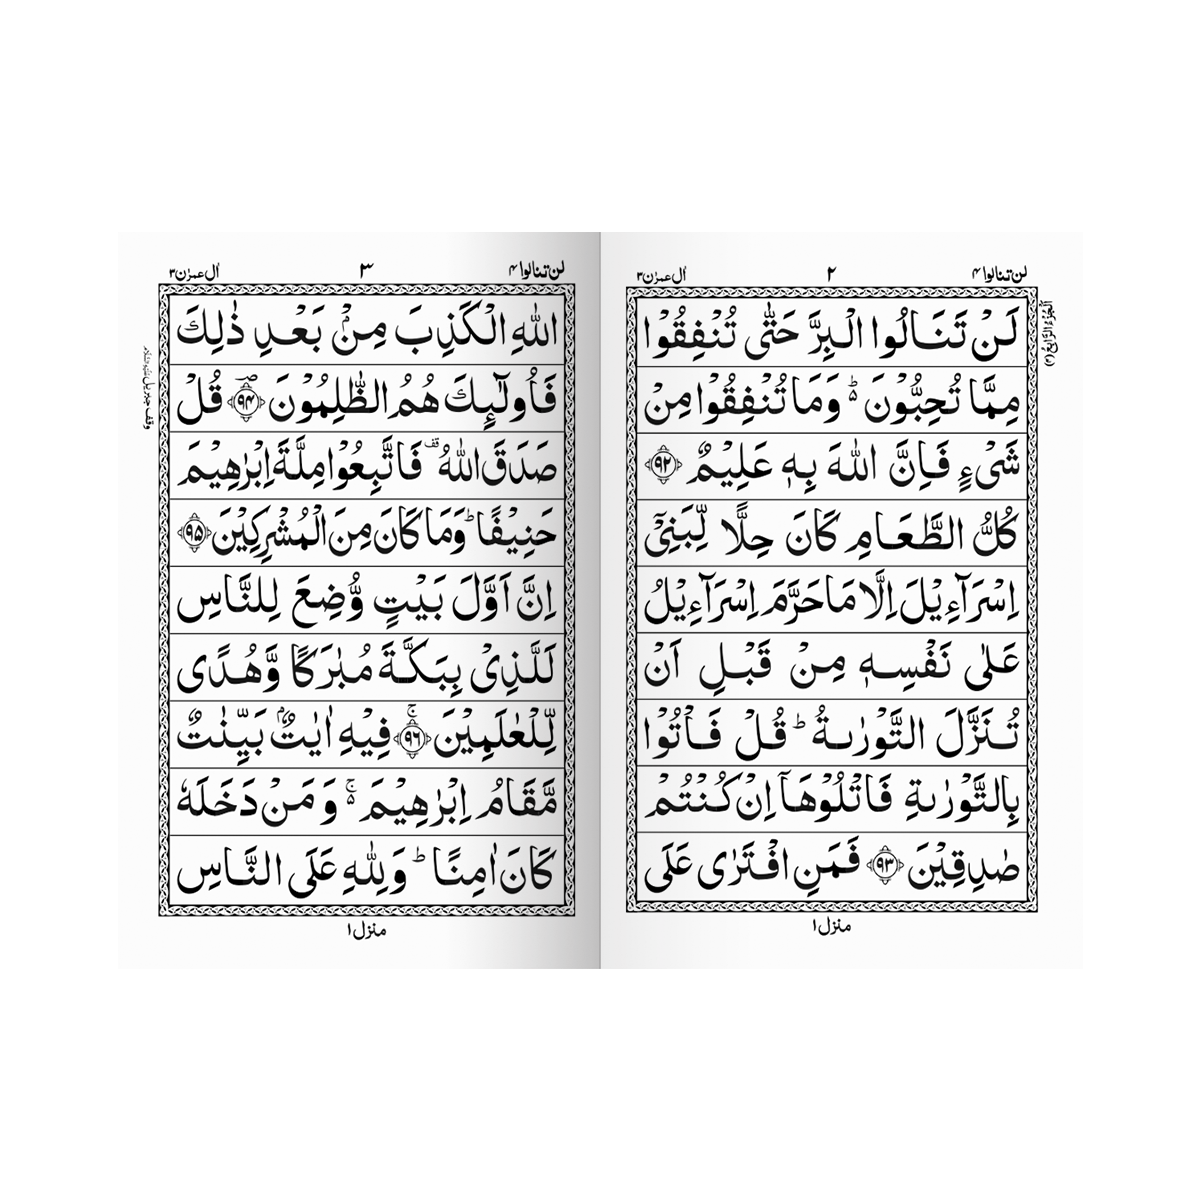 لن تنالوا ۴ ۲ اٰل عمرٰن ۳
اَلْجُزْءُ الرَّابِعُ (۴)
لَنْ تَنَالُوا الْبِرَّ حَتّٰى تُنْفِقُوْا
مِمَّا تُحِبُّوْنَ ؕ وَمَا تُنْفِقُوْا مِنْ
شَیْءٍ فَاِنَّ اللّٰهَ بِهٖ عَلِیْمٌ ﴿۹۲﴾
كُلُّ الطَّعَامِ كَانَ حِلًّا لِّبَنِیْۤ
اِسْرَآءِیْلَ اِلَّا مَا حَرَّمَ اِسْرَآءِیْلُ
عَلٰى نَفْسِهٖ مِنْ قَبْلِ اَنْ
تُنَزَّلَ التَّوْرٰىةُ ؕ قُلْ فَاْتُوْا
بِالتَّوْرٰىةِ فَاتْلُوْهَاۤ اِنْ كُنْتُمْ
صٰدِقِیْنَ ﴿۹۳﴾ فَمَنِ افْتَرٰى عَلَى
منزل ۱
لن تنالوا ۴ ۳ اٰل عمرٰن ۳
اللّٰهِ الْكَذِبَ مِنْۢ بَعْدِ ذٰلِكَ
فَاُولٰٓىِٕكَ هُمُ الظّٰلِمُوْنَ ﴿۹۴﴾ؔ قُلْ
صَدَقَ اللّٰهُ ۫ فَاتَّبِعُوْا مِلَّةَ اِبْرٰهِیْمَ
حَنِیْفًا ؕ وَمَا كَانَ مِنَ الْمُشْرِكِیْنَ ﴿۹۵﴾
اِنَّ اَوَّلَ بَیْتٍ وُّضِعَ لِلنَّاسِ
لَلَّذِیْ بِبَكَّةَ مُبٰرَكًا وَّهُدًى
لِّلْعٰلَمِیْنَ ﴿۹۶﴾ۚ فِیْهِ اٰیٰتٌۢ بَیِّنٰتٌ
مَّقَامُ اِبْرٰهِیْمَ ۚ۬ وَمَنْ دَخَلَهٗ
كَانَ اٰمِنًا ؕ وَلِلّٰهِ عَلَى النَّاسِ
منزل ۱